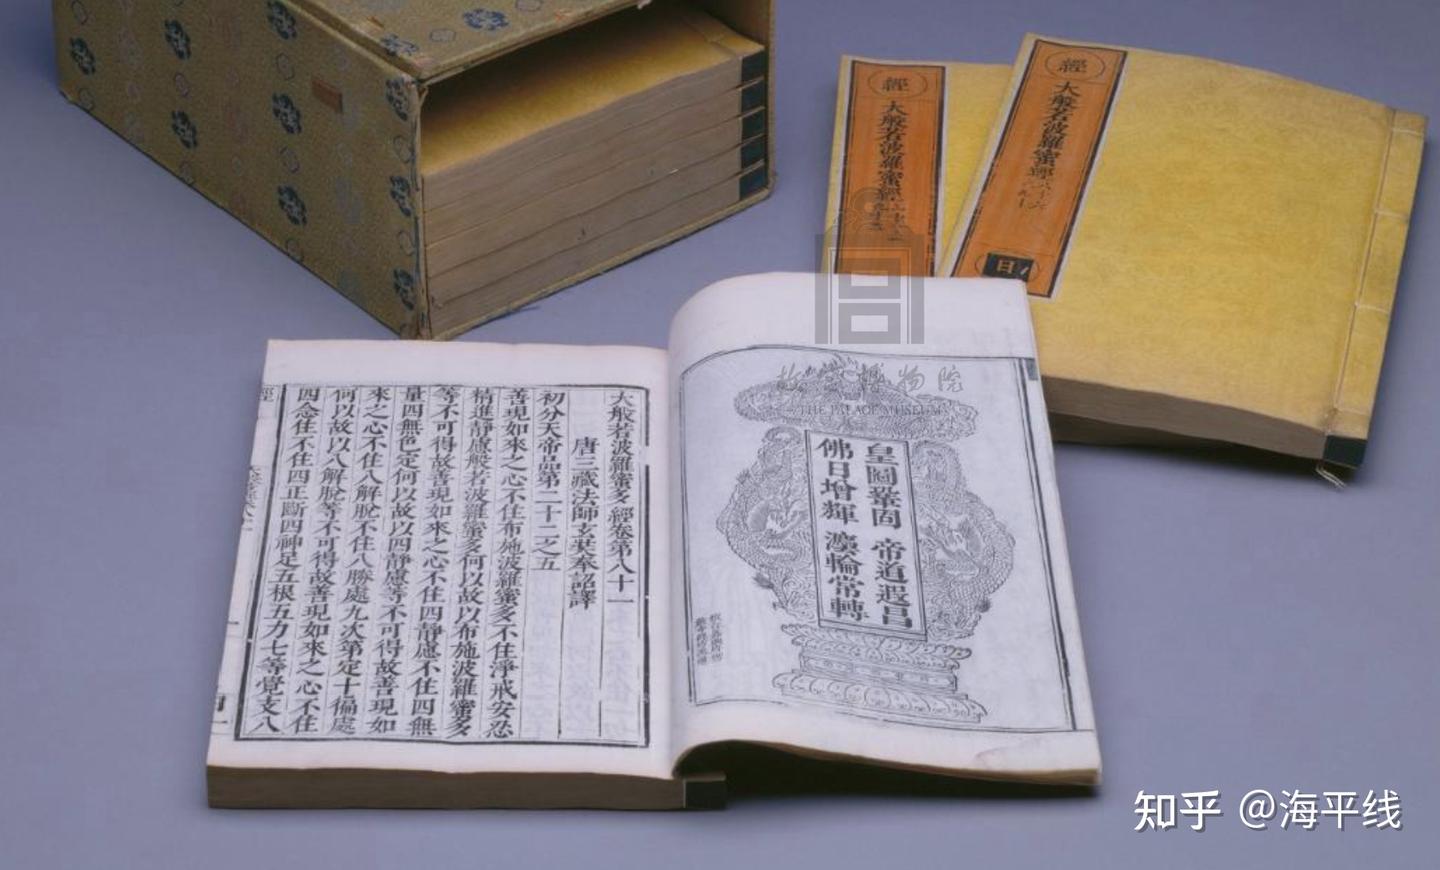 經
大般若波羅蜜經
經
大般若波羅蜜經
日
故宮博物院
THE PALACE MUSEUM
皇圖鞏固 帝道遐昌
佛日增輝 灋輪常轉
大般若波羅蜜多經卷第八十一
唐三藏法師玄奘奉詔譯
初分天帝品第二十二之五
善現如來之心不住布施波羅蜜多不住淨戒安忍
精進靜慮般若波羅蜜多何以故以布施波羅蜜多
等不可得故善現如來之心不住四靜慮不住四無
量四無色定何以故以四靜慮等不可得故善現如
來之心不住八解脫不住八勝處九次第定十徧處
何以故以八解脫等不可得故善現如來之心不住
四念住不住四正斷四神足五根五力七等覺支八
知乎 @海平线